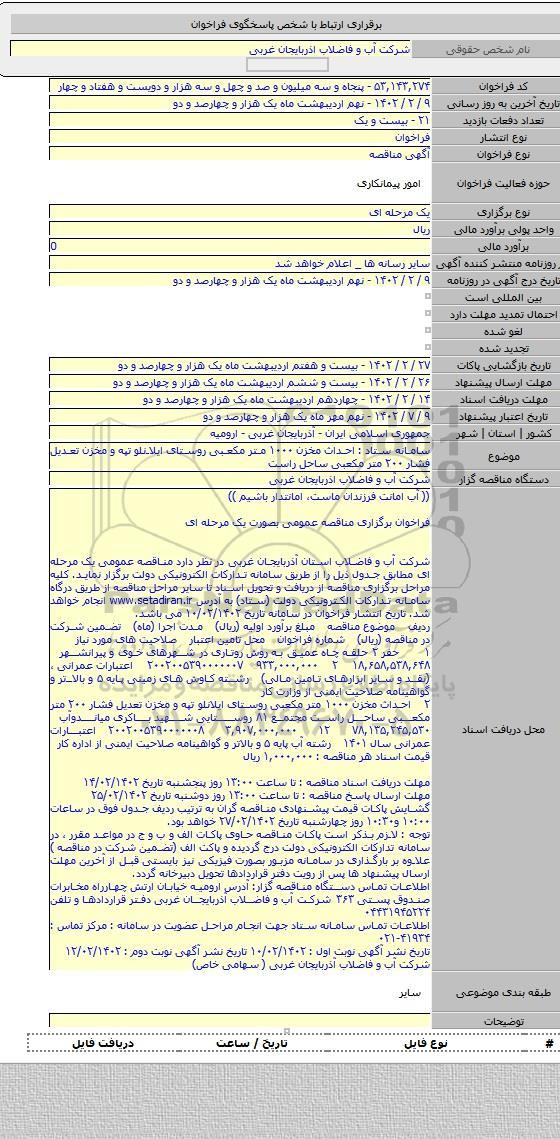 برقراری ارتباط با شخص پاسخگوی فراخوان
نام شخص حقوقی شرکت آب و فاضلاب اذربایجان غربی
کد فراخوان ۵۳,۱۴۳,۲۷۴ - پنجاه و سه میلیون و صد و چهل و سه هزار و دویست و هفتاد و چهار
تاریخ آخرین به روز رسانی ۹ / ۲ / ۱۴۰۲ - نهم اردیبهشت ماه یک هزار و چهارصد و دو
تعداد دفعات بازدید ۲۱ - بیست و یک
نوع انتشار فراخوان
نوع فراخوان آگهی مناقصه
حوزه فعالیت فراخوان امور پیمانکاری
نوع برگزاری یک مرحله ای
واحد پولی برآورد مالی ریال
برآورد مالی 0
روزنامه منتشر کننده آگهی سایر رسانه ها _ اعلام خواهد شد
تاریخ درج آگهی در روزنامه ۹ / ۲ / ۱۴۰۲ - نهم اردیبهشت ماه یک هزار و چهارصد و دو
بین المللی است
احتمال تمدید مهلت دارد
لغو شده
تجدید شده
تاریخ بازگشایی پاکات ۲۷ / ۲ / ۱۴۰۲ - بیست و هفتم اردیبهشت ماه یک هزار و چهارصد و دو
مهلت ارسال پیشنهاد ۲۶ / ۲ / ۱۴۰۲ - بیست و ششم اردیبهشت ماه یک هزار و چهارصد و دو
مهلت دریافت اسناد ۱۴ / ۲ / ۱۴۰۲ - چهاردهم اردیبهشت ماه یک هزار و چهارصد و دو
تاریخ اعتبار پیشنهاد ۹ / ۷ / ۱۴۰۲ - نهم مهر ماه یک هزار و چهارصد و دو
کشور | استان | شهر جمهوری اسلامی ایران - آذربایجان غربی - ارومیه
موضوع سامانه ستاد : احداث مخزن ۱۰۰۰ متر مکعبی روستای ایلانلو تپه و مخزن تعدیل
فشار ۲۰۰ متر مکعبی ساحل راست
دستگاه مناقصه گزار شرکت آب و فاضلاب اذربایجان غربی
محل دریافت اسناد
(( آب امانت فرزندان ماست، امانتدار باشیم ))
فراخوان برگزاری مناقصه عمومی بصورت یک مرحله ای
شرکت آب و فاضلاب استان آذربایجان غربی در نظر دارد مناقصه عمومی یک مرحله
ای مطابق جدول ذیل را از طریق سامانه تدارکات الکترونیکی دولت برگزار نماید. کلیه
مراحل برگزاری مناقصه از دریافت و تحویل اسناد تا سایر مراحل مناقصه از طریق درگاه
سامانه تدارکات الکترونیکی دولت (ستاد) به آدرس www.setadiran.ir انجام خواهد
شد. تاریخ انتشار فراخوان در سامانه تاریخ ۱۰/۰۲/۱۴۰۲ می باشد.
ردیف موضوع مناقصه مبلغ برآورد اولیه (ریال) مدت اجرا (ماه) تضمین شرکت
در مناقصه (ریال) شماره فراخوان محل تامین اعتبار صلاحیت های مورد نیاز
۱ حفر ۲ حلقه چاه عمیق به روش روتاری در شهرهای خوی و پیرانشهر
۱۸,۶۵۸,۵۳۸,۶۴۸ ۲ ۹۳۳,۰۰۰,۰۰۰ ۲۰۰۲۰۰۵۳۹۰۰۰۰۰۰۷ اعتبارات عمرانی ،
(نقد و سایر ابزارهای تامین مالی) رشته کاوش های زمینی پایه ۵ و بالاتر و
گواهینامه صلاحیت ایمنی از وزارت کار
۲ احداث مخزن ۱۰۰۰ متر مکعبی روستای ایلانلو تپه و مخزن تعدیل فشار ۲۰۰ متر
مکعبی ساحل راست مجتمع ۸۱ روستایی شهید باکری میاندواب
۷۸,۱۳۵,۲۴۵,۵۳۰ ۱۲ ۳,۹۰۷,۰۰۰,۰۰۰ ۲۰۰۲۰۰۵۳۹۰۰۰۰۰۸ اعتبارات
عمرانی سال ۱۴۰۱ رشته آب پایه ۵ و بالاتر و گواهینامه صلاحیت ایمنی از اداره کار
قیمت اسناد هر مناقصه : ۱,۰۰۰,۰۰۰ ریال
مهلت دریافت اسناد مناقصه : تا ساعت ۱۳:۰۰ روز پنجشنبه تاریخ ۱۴/۰۲/۱۴۰۲
مهلت ارسال پاسخ مناقصه : تا ساعت ۱۳:۰۰ روز دوشنبه تاریخ ۲۵/۰۲/۱۴۰۲
گشایش پاکات قیمت پیشنهادی مناقصه گران به ترتیب ردیف جدول فوق در ساعات
۱۰:۰۰ و۱۰:۳۰ روز چهارشنبه تاریخ ۲۷/۰۲/۱۴۰۲ خواهد بود.
توجه : لازم بذکر است پاکات مناقصه حاوی پاکات الف و ب و ج در مواعد مقرر ، در
سامانه تدارکات الکترونیکی دولت درج گردیده و پاکت الف (تضمین شرکت در مناقصه )
علاوه بر بارگذاری در سامانه مزبور بصورت فیزیکی نیز بایستی قبل از آخرین مهلت
ارسال پیشنهاد ها پس از رویت دفتر قراردادها تحویل دبیرخانه گردد.
اطلاعات تماس دستگاه مناقصه گزار: آدرس ارومیه خیابان ارتش چهارراه مخابرات
صندوق پستی ۳۶۳ شرکت آب و فاضلاب آذربایجان غربی دفتر قراردادها و تلفن
۰۴۴۳۱۹۴۵۲۲۴
اطلاعات تماس سامانه ستاد جهت انجام مراحل عضویت در سامانه : مرکز تماس :
۰۲۱-۴۱۹۳۴
تاریخ نشر آگهی نوبت اول : ۱۰/۰۲/۱۴۰۲ تاریخ نشر آگهی نوبت دوم : ۱۲/۰۲/۱۴۰۲
شرکت آب و فاضلاب آذربایجان غربی ( سهامی خاص)
طبقه بندی موضوعی سایر
توضیحات
# نوع فایل تاریخ / ساعت دریافت فایل